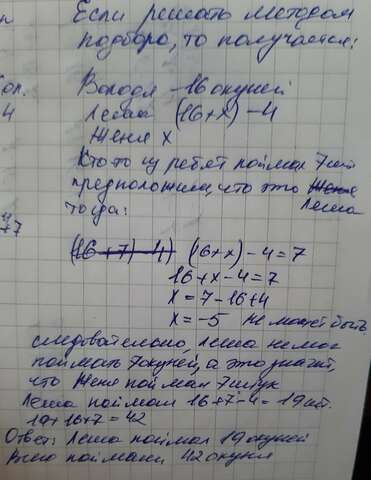 Если решать методом
подбора, то получается:
Володя - 16 окуней
Леша (16+x) - 4
Женя x
Кто то из ребят поймал 7 шт
предположим, что это Женя Леша
тогда:
(16+7)-4) (16+x)-4=7
16+x-4=7
x=7-16+4
x=-5 не может быть
следовательно, Леша не мог
поймать 7 окуней, а это значит,
что Женя поймал 7 штук
Леша поймал 16+7-4=19 шт.
19+16+7=42
Ответ: Леша поймал 19 окуней
Всего поймали 42 окуня